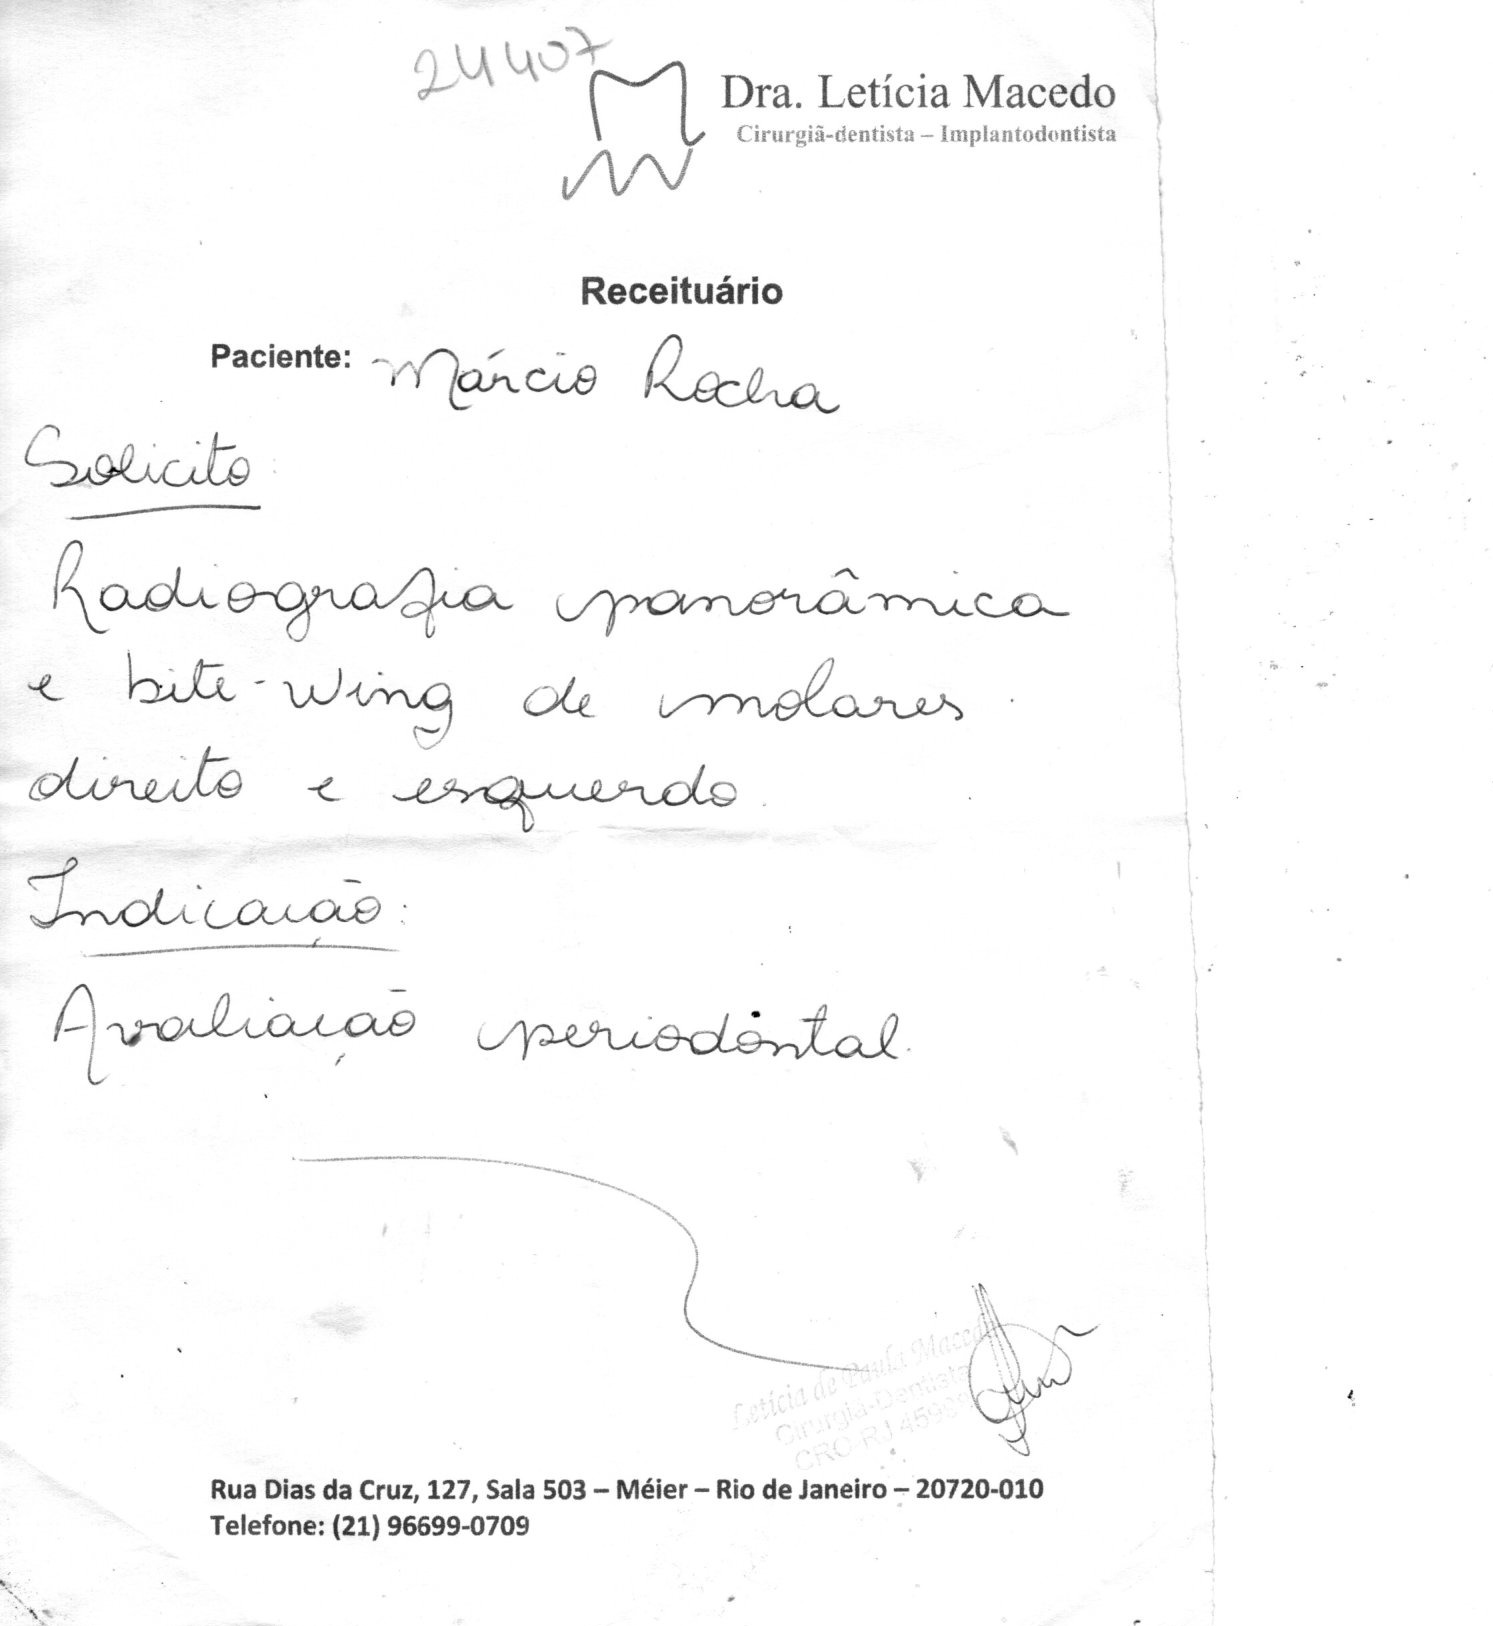 24407
Dra. Letícia Macedo
Cirurgiã-dentista – Implantodontista
Receituário
Paciente: Márcio Rocha
Solicito:
Radiografia panorâmica
e bite-wing de molares
direito e esquerdo.
Indicação:
Avaliação periodontal.
Letícia de Paula Macedo
Cirurgiã-Dentista
CRO-RJ
Rua Dias da Cruz, 127, Sala 503 – Méier – Rio de Janeiro – 20720-010
Telefone: (21) 96699-0709